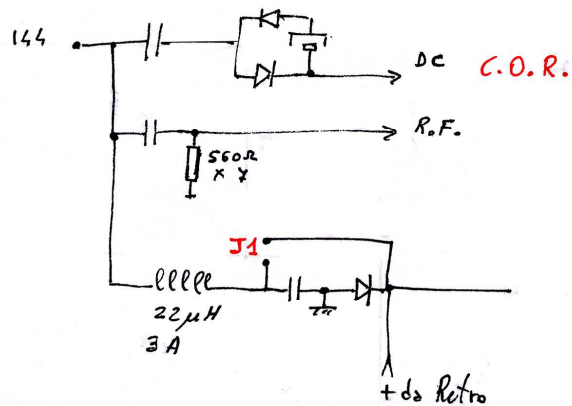 144
DC C.O.R.
R.F.
560Ω
x 7
J1
22μH
3A
+ da Retro